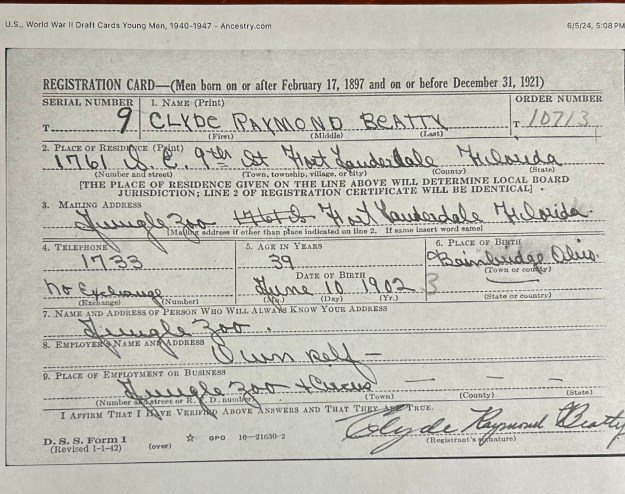 U.S., World War II Draft Cards Young Men, 1940-1947 - Ancestry.com 6/5/24, 5:08 PM
REGISTRATION CARD—(Men born on or after February 17, 1897 and on or before December 31, 1921)
SERIAL NUMBER 1. NAME (Print) ORDER NUMBER
T 9 CLYDE RAYMOND BEATTY T 10713
(First) (Middle) (Last)
2. PLACE OF RESIDENCE (Print)
1761 S. E. 9th St Fort Lauderdale Florida
(Number and street) (Town, township, village, or city) (County) (State)
[THE PLACE OF RESIDENCE GIVEN ON THE LINE ABOVE WILL DETERMINE LOCAL BOARD
JURISDICTION; LINE 2 OF REGISTRATION CERTIFICATE WILL BE IDENTICAL]
3. MAILING ADDRESS
Jungle Zoo Fort Lauderdale Florida.
[Mailing address if other than place indicated on line 2. If same insert word same]
4. TELEPHONE 5. AGE IN YEARS 6. PLACE OF BIRTH
1733 39 Bainbridge Ohio.
(Town or county)
DATE OF BIRTH
No Exchange June 10 1902 3
(Exchange) (Number) (Mo.) (Day) (Yr.) (State or country)
7. NAME AND ADDRESS OF PERSON WHO WILL ALWAYS KNOW YOUR ADDRESS
Jungle Zoo.
8. EMPLOYER'S NAME AND ADDRESS
Own self—
9. PLACE OF EMPLOYMENT OR BUSINESS
Jungle Zoo + Circus — — —
(Number and street or R. F. D. number) (Town) (County) (State)
I AFFIRM THAT I HAVE VERIFIED ABOVE ANSWERS AND THAT THEY ARE TRUE.
Clyde Raymond Beatty
D. S. S. Form 1 (Registrant's signature)
(Revised 1-1-42) (over) ☆ GPO 16—21630-2